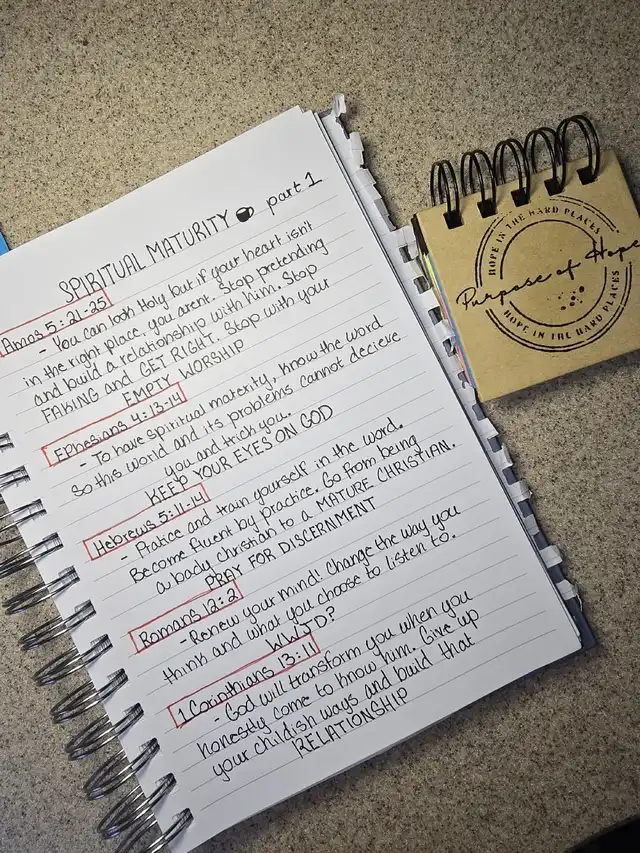 SPIRITUAL MATURITY part 1
Amos 5:21-25
- You can look Holy but if your heart isn't
in the right place, you arent. Stop pretending
and build a relationship with him. Stop
FAKING and GET RIGHT. Stop with your
EMPTY WORSHIP
Ephesians 4:13-14
- To have spiritual materity, know the word
So this world and its problems cannot decieve
you and trick you.
KEEP YOUR EYES ON GOD
Hebrews 5:11-14
- Pratice and train yourself in the word.
Become fluent by practice. Go from being
a baby christian to a MATURE CHRISTIAN.
PRAY FOR DISCERNMENT
Romans 12:2
- Renew your mind! Change the way you
think and what you choose to listen to.
WWJD?
1 Corinthians 13:11
- God will transform you when you
honestly come to know him. Give up
your childish ways and build that
RELATIONSHIP
HOPE IN THE HARD PLACES
Purpose of Hope
HOPE IN THE HARD PLACES